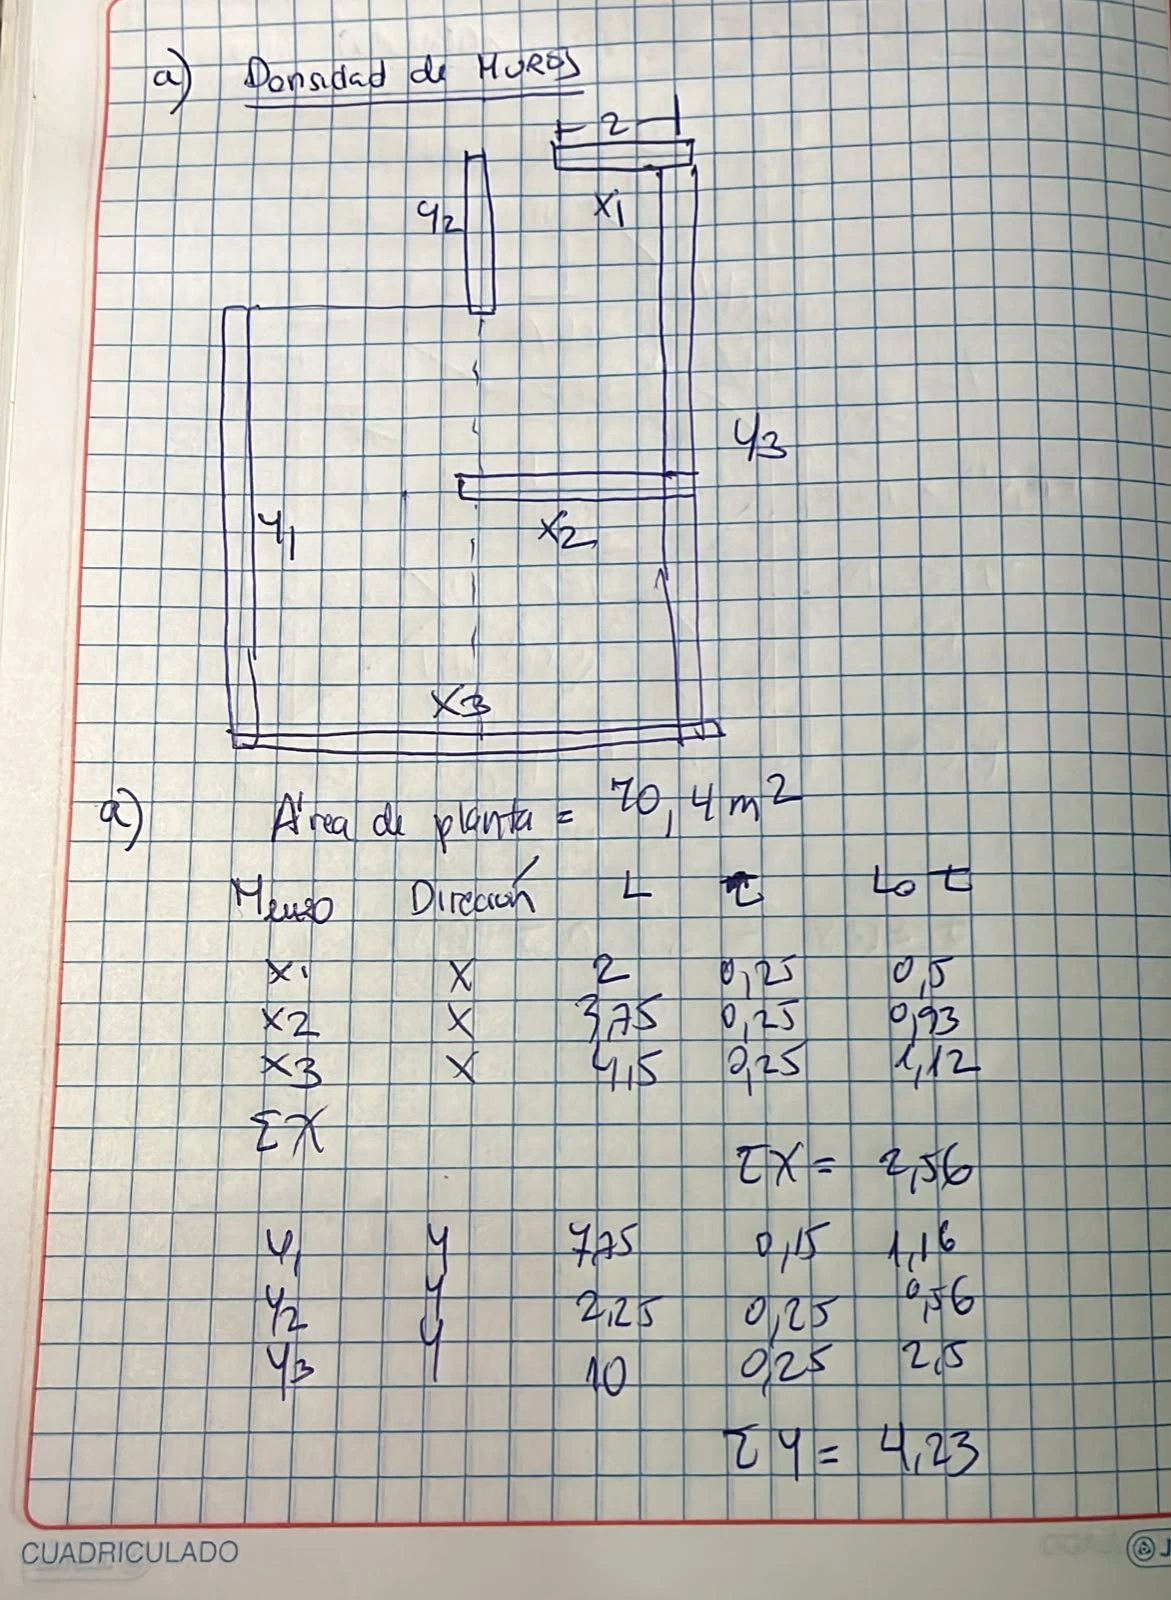 a) Densidad de MUROS
2
y2
x1
y3
y1
x2
x3
a) Área de planta = 70,4 m2
Muro Dirección L t L o t
x1 x 2 0,25 0,5
x2 x 3,75 0,25 0,93
x3 x 4,5 0,25 1,12
Σ X
Σ X = 2,56
y1 y 7,75 0,15 1,16
y2 y 2,25 0,25 0,56
y3 y 10 0,25 2,5
Σ y = 4,23
CUADRICULADO